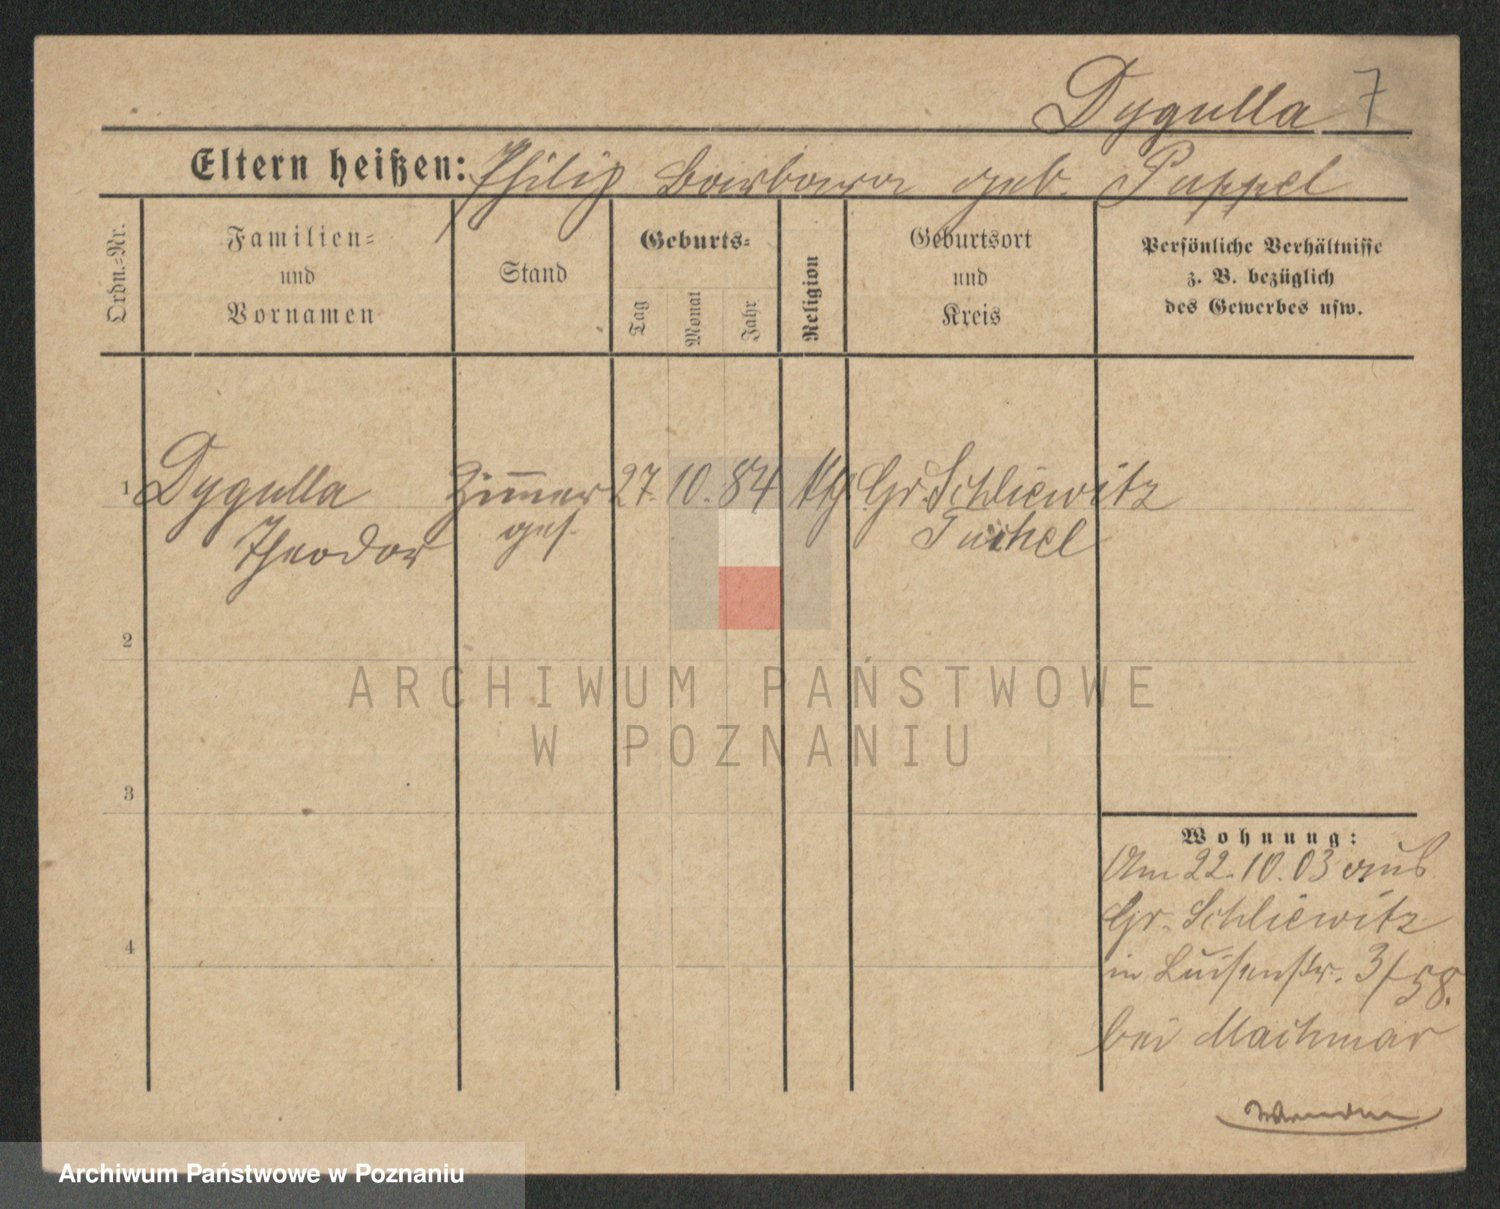 Dygulla 7
Eltern heißen: Philip Barbara geb. Puppel
Ordn.-Nr.
Familien-
und
Vornamen
Stand
Geburts-
Tag
Monat
Jahr
Religion
Geburtsort
und
Kreis
Persönliche Verhältnisse
z. B. bezüglich
des Gewerbes usw.
1 Dygulla Zimmer 27. 10. 84 kth Gr. Schliewitz
Theodor ges. Tuchel
2
3
4
Wohnung:
Am 22.10.03 aus
Gr. Schliewitz
in Luisenstr. 3/58.
bei Machmar
Wenden
ARCHIWUM PAŃSTWOWE
W POZNANIU
Archiwum Państwowe w Poznaniu